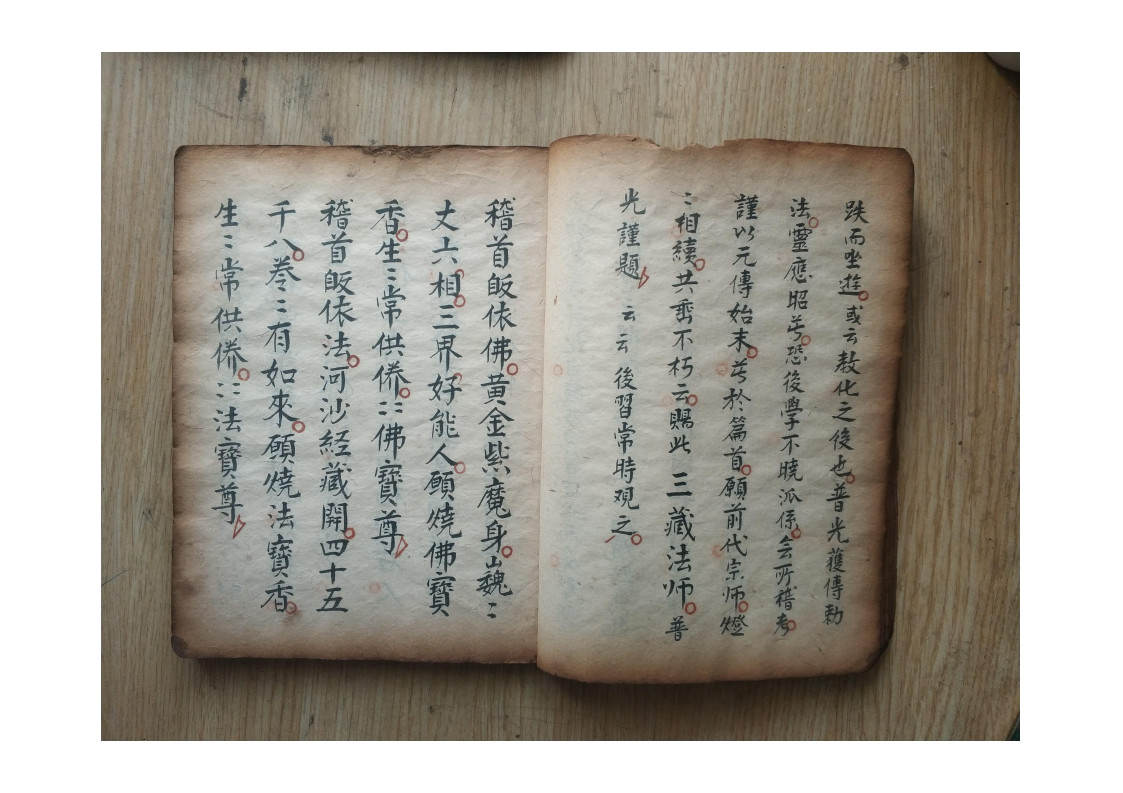 跌而坐遊或云教化之後也普光獲傳勅
法靈應昭苐恐後學不曉派係会所稽考
謹以元傳始末苐於篇首願前代宗师燈
〻相續共垂不朽云賜此三藏法师普
光謹題云云後習常時观之
稽首皈依佛黃金紫魔身山魏〻
丈六相三界好能人願燒佛寶
香生〻常供侍〻佛寶尊
稽首皈依法河沙経藏開四十五
千八卷〻有如來願燒法寶香
生〻常供侍〻法寶尊